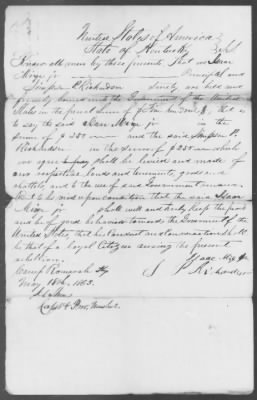 United States of America
State of Kentucky
Know all men by these presents That we Isaac
Mize jr Principal and
Simpson P. Richardson Surety are held and
firmly bound unto the Government of the United
States in the penal sum of
to say the said Isaac Mize jr in the
sum of $ 250 and the said Simpson P.
Richardson in the sum of $ 250 which
we agree shall be levied and made of
our respective lands and tenements, goods and
chattels and to the use of said Government
But to be void upon condition that the said Isaac
Mize jr shall well and truly keep the peace
and be of good behavior towards the Government of the
United States, that his conduct and conversation shall
be that of a loyal Citizen during the present
rebellion.
Isaac Mize jr
Camp Ky S P Richardson
May 18th, 1863.
Capt & Pro. Marshal